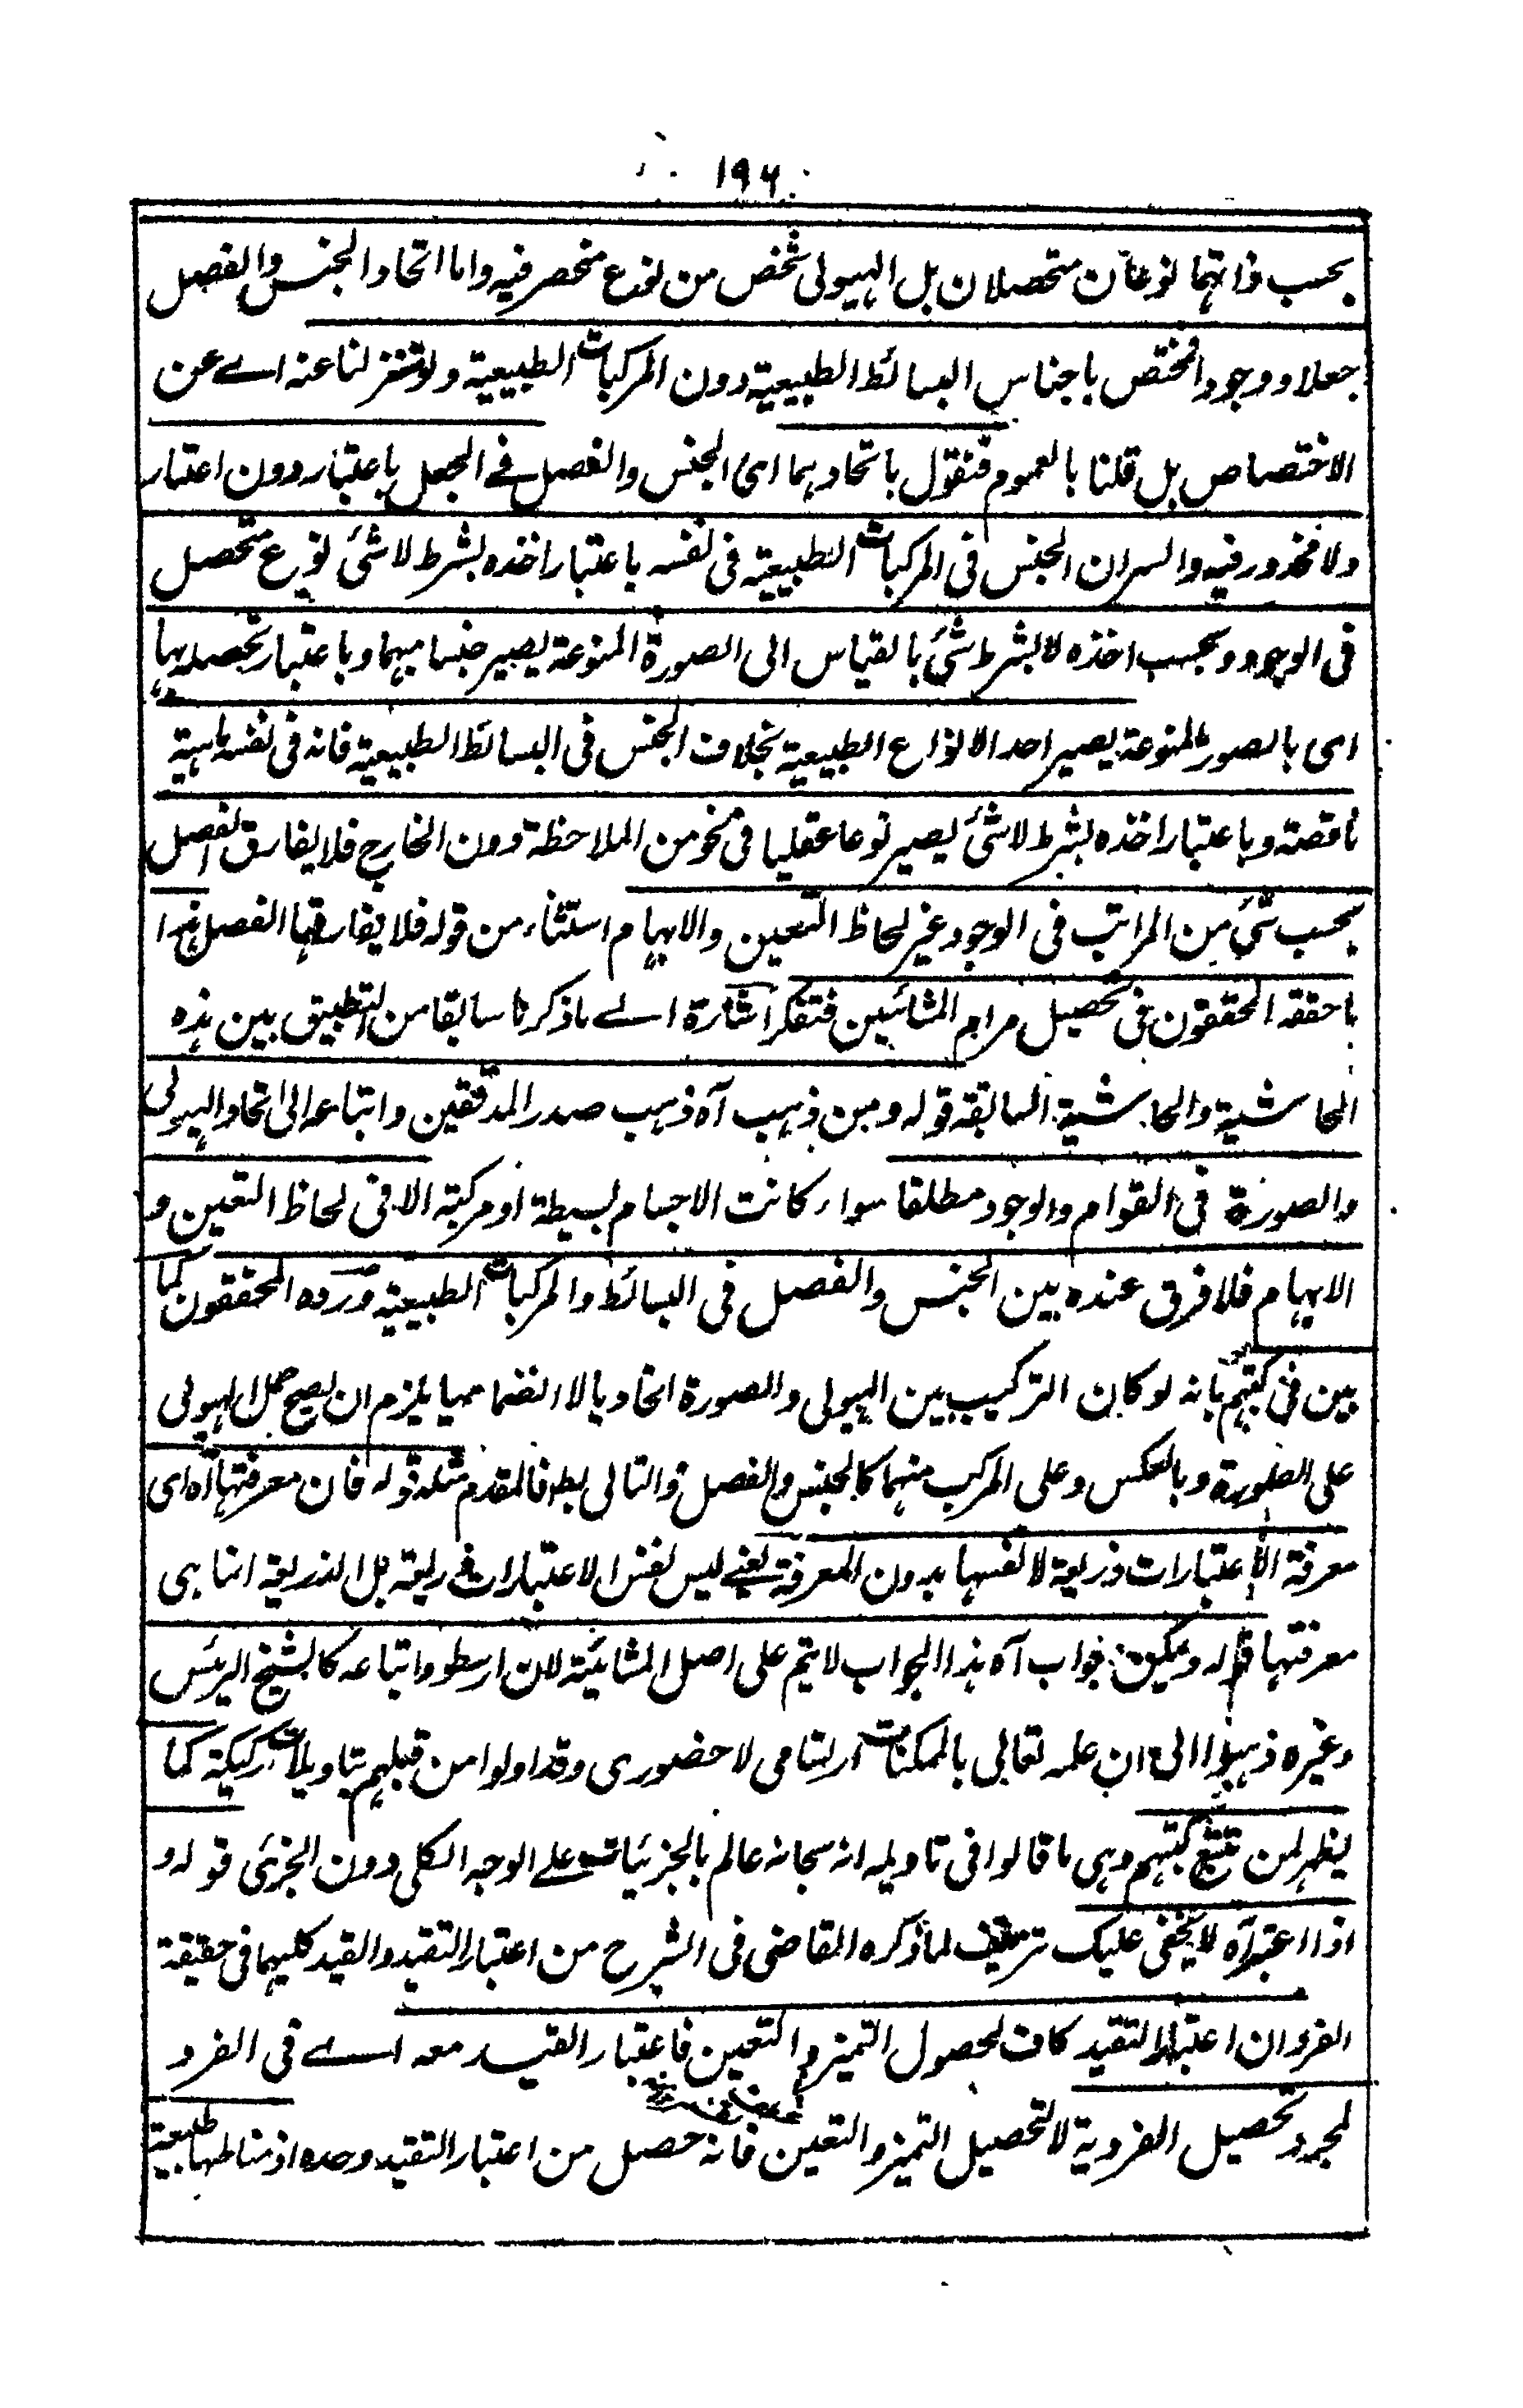 ١٩٦
بحسب ذاتهما نوعان متحصلان بل الهيولى شخص من نوع منحصر فيه واما اتحاد الجنس والفصل
جعلا ووجودا فمختص باجناس البسائط الطبيعية دون المركبات الطبيعية ولو تنزلنا عنه اے عن
الاختصاص بل قلنا بالعموم فنقول باتحادهما اى الجنس والفصل فے الجعل باعتبار دون اعتبار
ولا محذور فيه والسر ان الجنس فى المركبات الطبيعية فى نفسه باعتبار اخذه بشرط لا شئ نوع متحصل
فى الوجود وبحسب اخذه لا بشرط شئ بالقياس الى الصورة المنوعة يصير جنسا مبهما وباعتبار تحصله بها
اى بالصور المنوعة يصير احد الانواع الطبيعية بخلاف الجنس فى البسائط الطبيعية فانه فى نفسه ماهية
ناقصة وباعتبار اخذه بشرط لا شئ يصير نوعا عقليا فى نحو من الملاحظة دون الخارج فلا يفارق الفصل
بحسب شئ من المراتب فى الوجود غير لحاظ التعين والابهام استثناء من قوله فلا يفارقها الفصل هذا
ما حققه المحققون فى تحصيل مرام المشائين فتفكر اشارة الے ما ذكرنا سابقا من التطبيق بين هذه
الحاشية والحاشية السابقة قوله ومن ذهب آه ذهب صدر المدققين واتباعه الى اتحاد الهيولى
والصورة فى القوام والوجود مطلقا سواء كانت الاجسام بسيطة او مركبة الا فى لحاظ التعين و
الابهام فلا فرق عنده بين الجنس والفصل فى البسائط والمركبات الطبيعية ورده المحققون كما
بين فى كتبهم بانه لو كان التركيب بين الهيولى والصورة اتحاديا لا انضماميا يلزم ان يصح حمل الهيولى
على الصورة وبالعكس وعلى المركب منهما كالجنس والفصل والتالى بط فالمقدم مثله قوله فان معرفتها آه اى
معرفة الاعتبارات ذريعة لا نفسها بدون المعرفة يعنے ليس نفس الاعتبارات ذريعة بل الذريعة انما هى
معرفتها قوله ويمكن جواب آه هذا الجواب لا يتم على اصل المشائية لان ارسطو واتباعه كالشيخ الرئيس
وغيره ذهبوا الى ان علمه تعالى بالممكنات ارتسامى لا حضورى وقد اولوا من قبلهم بتاويلات ركيكة كما
يظهر لمن تتبع كتبهم وهى ما قالوا فى تاويله انه سبحانه عالم بالجزئيات علے الوجه الكلى دون الجزئى قوله و
اذا اعتبر آه لا يخفى عليك تزييف لما ذكره القاضى فى الشرح من اعتبار التقيد والقيد كليهما فى حقيقة
الفرد ان اعتبار التقيد كاف لحصول التميز والتعين فاعتبار القيد معه اے فى الفرد
لمجرد تحصيل الفردية لا لتحصيل التميز والتعين فانه حصل من اعتبار التقيد وحده اذ مناطها طبيعة